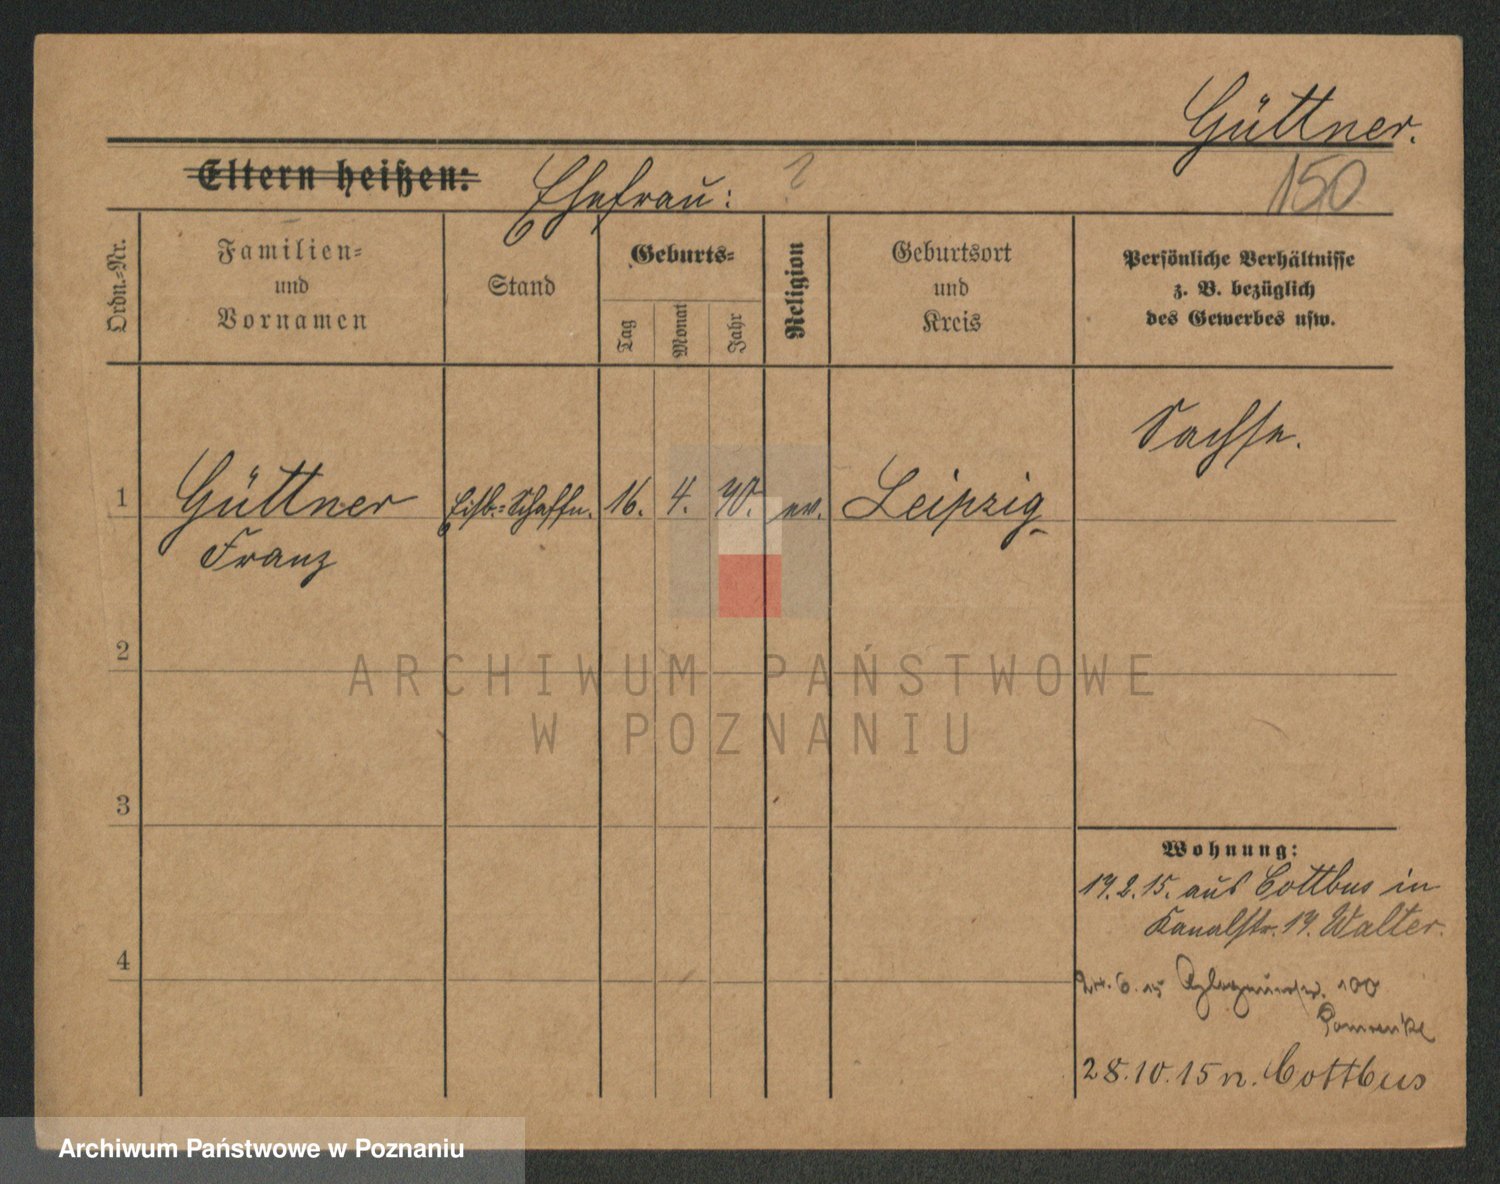 Güttner.
Eltern heißen:
Ehefrau: ?
150
Ordn.-Nr.
Familien-
und
Vornamen
Stand
Geburts-
Tag
Monat
Jahr
Religion
Geburtsort
und
Kreis
Persönliche Verhältnisse
z. B. bezüglich
des Gewerbes usw.
Sachse.
1 Güttner Eisb.-Schaffn. 16. 4. 90. ev. Leipzig
Franz
2
ARCHIWUM PAŃSTWOWE
W POZNANIU
3
Wohnung:
17.2.15. aus Cottbus in
Kanalstr. 17. Walter.
4
6. 15 100
28.10.15 n. Cottbus
Archiwum Państwowe w Poznaniu